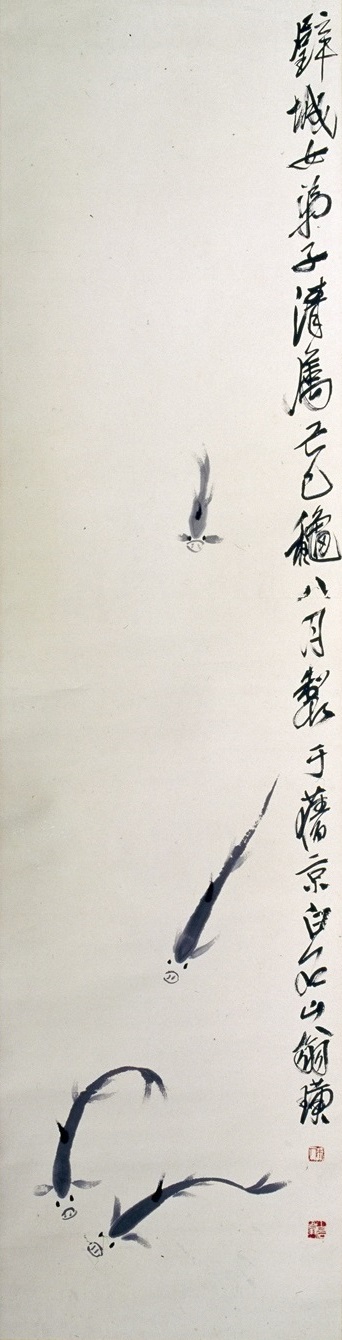 璧城女弟子清屬己巳龝八月製于舊京白石山翁璜